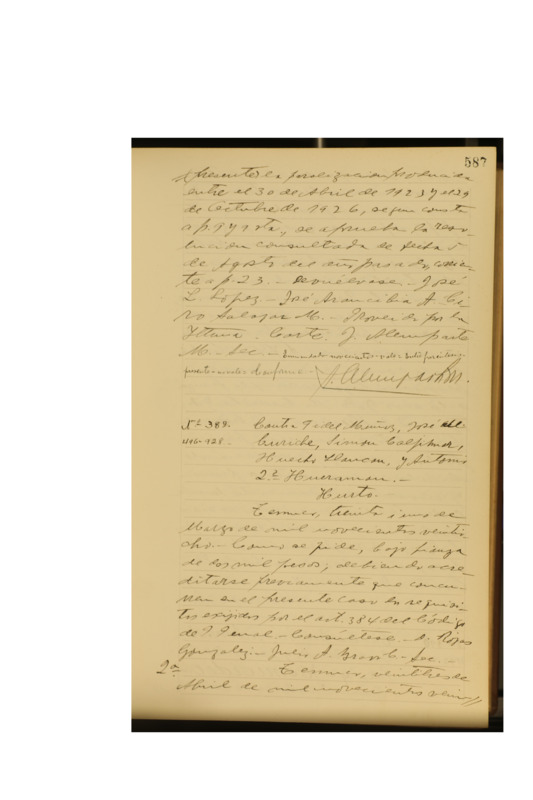 587
presente la paralizacion producida
entre el 30 de Abril de 1923 y el 29
de Octubre de 1926, segun consta
a p. 9 y vta, se aprueba la reso-
lucion consultada de fecha 5
de Agosto del año pasado, corrien-
te a p. 23. - Devuélvase. - José
L. Lopez - José Arancibia A. Ci-
ro Salazar M. - Proveida por la
Iltma. Corte. J. Alemparte
M. - Sec. -
conforme -
J. Alemparte M.
Nº 388.
Contra Fidel Muñoz, José
Curiche, Simon Calfunir,
Huecho Llancan, y Antonio
2º Hueraman. -
Hurto.
Temuco, treinta i uno de
Marzo de mil novecientos veintio-
cho. - Como se pide, bajo fianza
de dos mil pesos; debiendo acre-
ditarse previamente que concu-
rren en el presente caso los requisi-
tos exijidos por el art. 384 del Código
de P. Penal. - Consúltese. - A. Rojas
Gonzalez. - Julio A. - Sec. -
2ª Temuco, veintitres de
Abril de mil novecientos vein